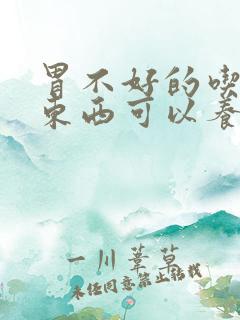 胃不好的喫
东西可以养
一川葦草
未经同意禁止转载